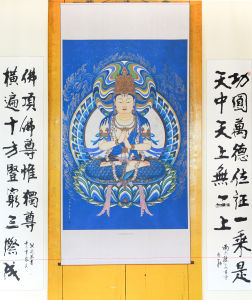 功圓萬德位証一乘是
天中天上無二上
橫遍十方豎窮三際成
佛頂佛尊惟獨尊